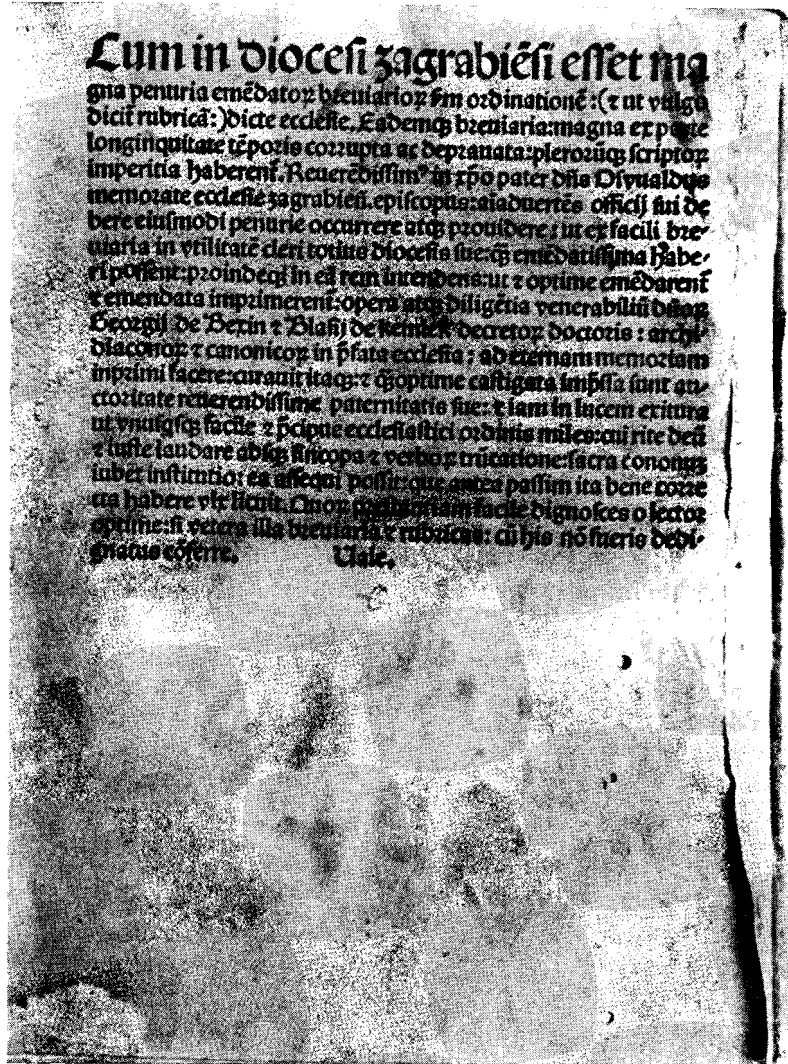 Cum in diocesi zagrabiẽsi esset ma
gna penuria emẽdatoꝝ breuiarioꝝ ẽm ordinationẽ :(⁊ ut vulgo
dicit᷑ rubricã:)dicte ecclesie. Eademqꝫ breuiaria:magna ex parte
longinquitate tẽporis corrupta ac deprauata:plerorũqꝫ scriptoꝝ
imperitia haberent᷑. Reuerẽdissimꝰ in xp̃o pater dñs Osvualdus
memorate ecclesie zagrabieñ. episcopus:aĩaduertẽs officij sui de
bere eiusmodi penurie occurrere atqꝫ prouidere : ut ex facili bre⸗
uiaria in vtilitatẽ cleri totius diocesis sue:qꝫ emẽdatissima habe⸗
ri possent:proindeqꝫ in eã rem intendens:ut ⁊ optime emẽdarent᷑
⁊ emendata imprimerent᷑:opera atqꝫ diligẽtia venerabiliũ duoꝝ
Georgij de Bexin ⁊ Blasij de decretoꝝ doctoris : archi⸗
diaconoꝝ ⁊ canonicoꝝ in p̃fata ecclesia : ad eternam memoriam
inprimi facere:curauit itaqꝫ: ⁊ qꝫoptime castigata imp̃ssa sunt au⸗
ctoritate reuerendissime paternitatis sue: ⁊ iam in lucem exitura
ut vnusqsqꝫ facile ⁊ p̃cipue ecclesiastici ordinis miles:cui rite deũ
⁊ iuste laudare absqꝫ sincopa ⁊ verboꝝ trũcatione:sacra cononqꝫ
iubet institutio: ea assequi possit:que antea passim ita bene corre
cta habere vix licuit. Quoꝝ facile dignosces o lector
optime:si vetera illa breuiaria ⁊ rubricas: cũ his nõ fueris dedi⸗
gnatus cõferre. Uale.